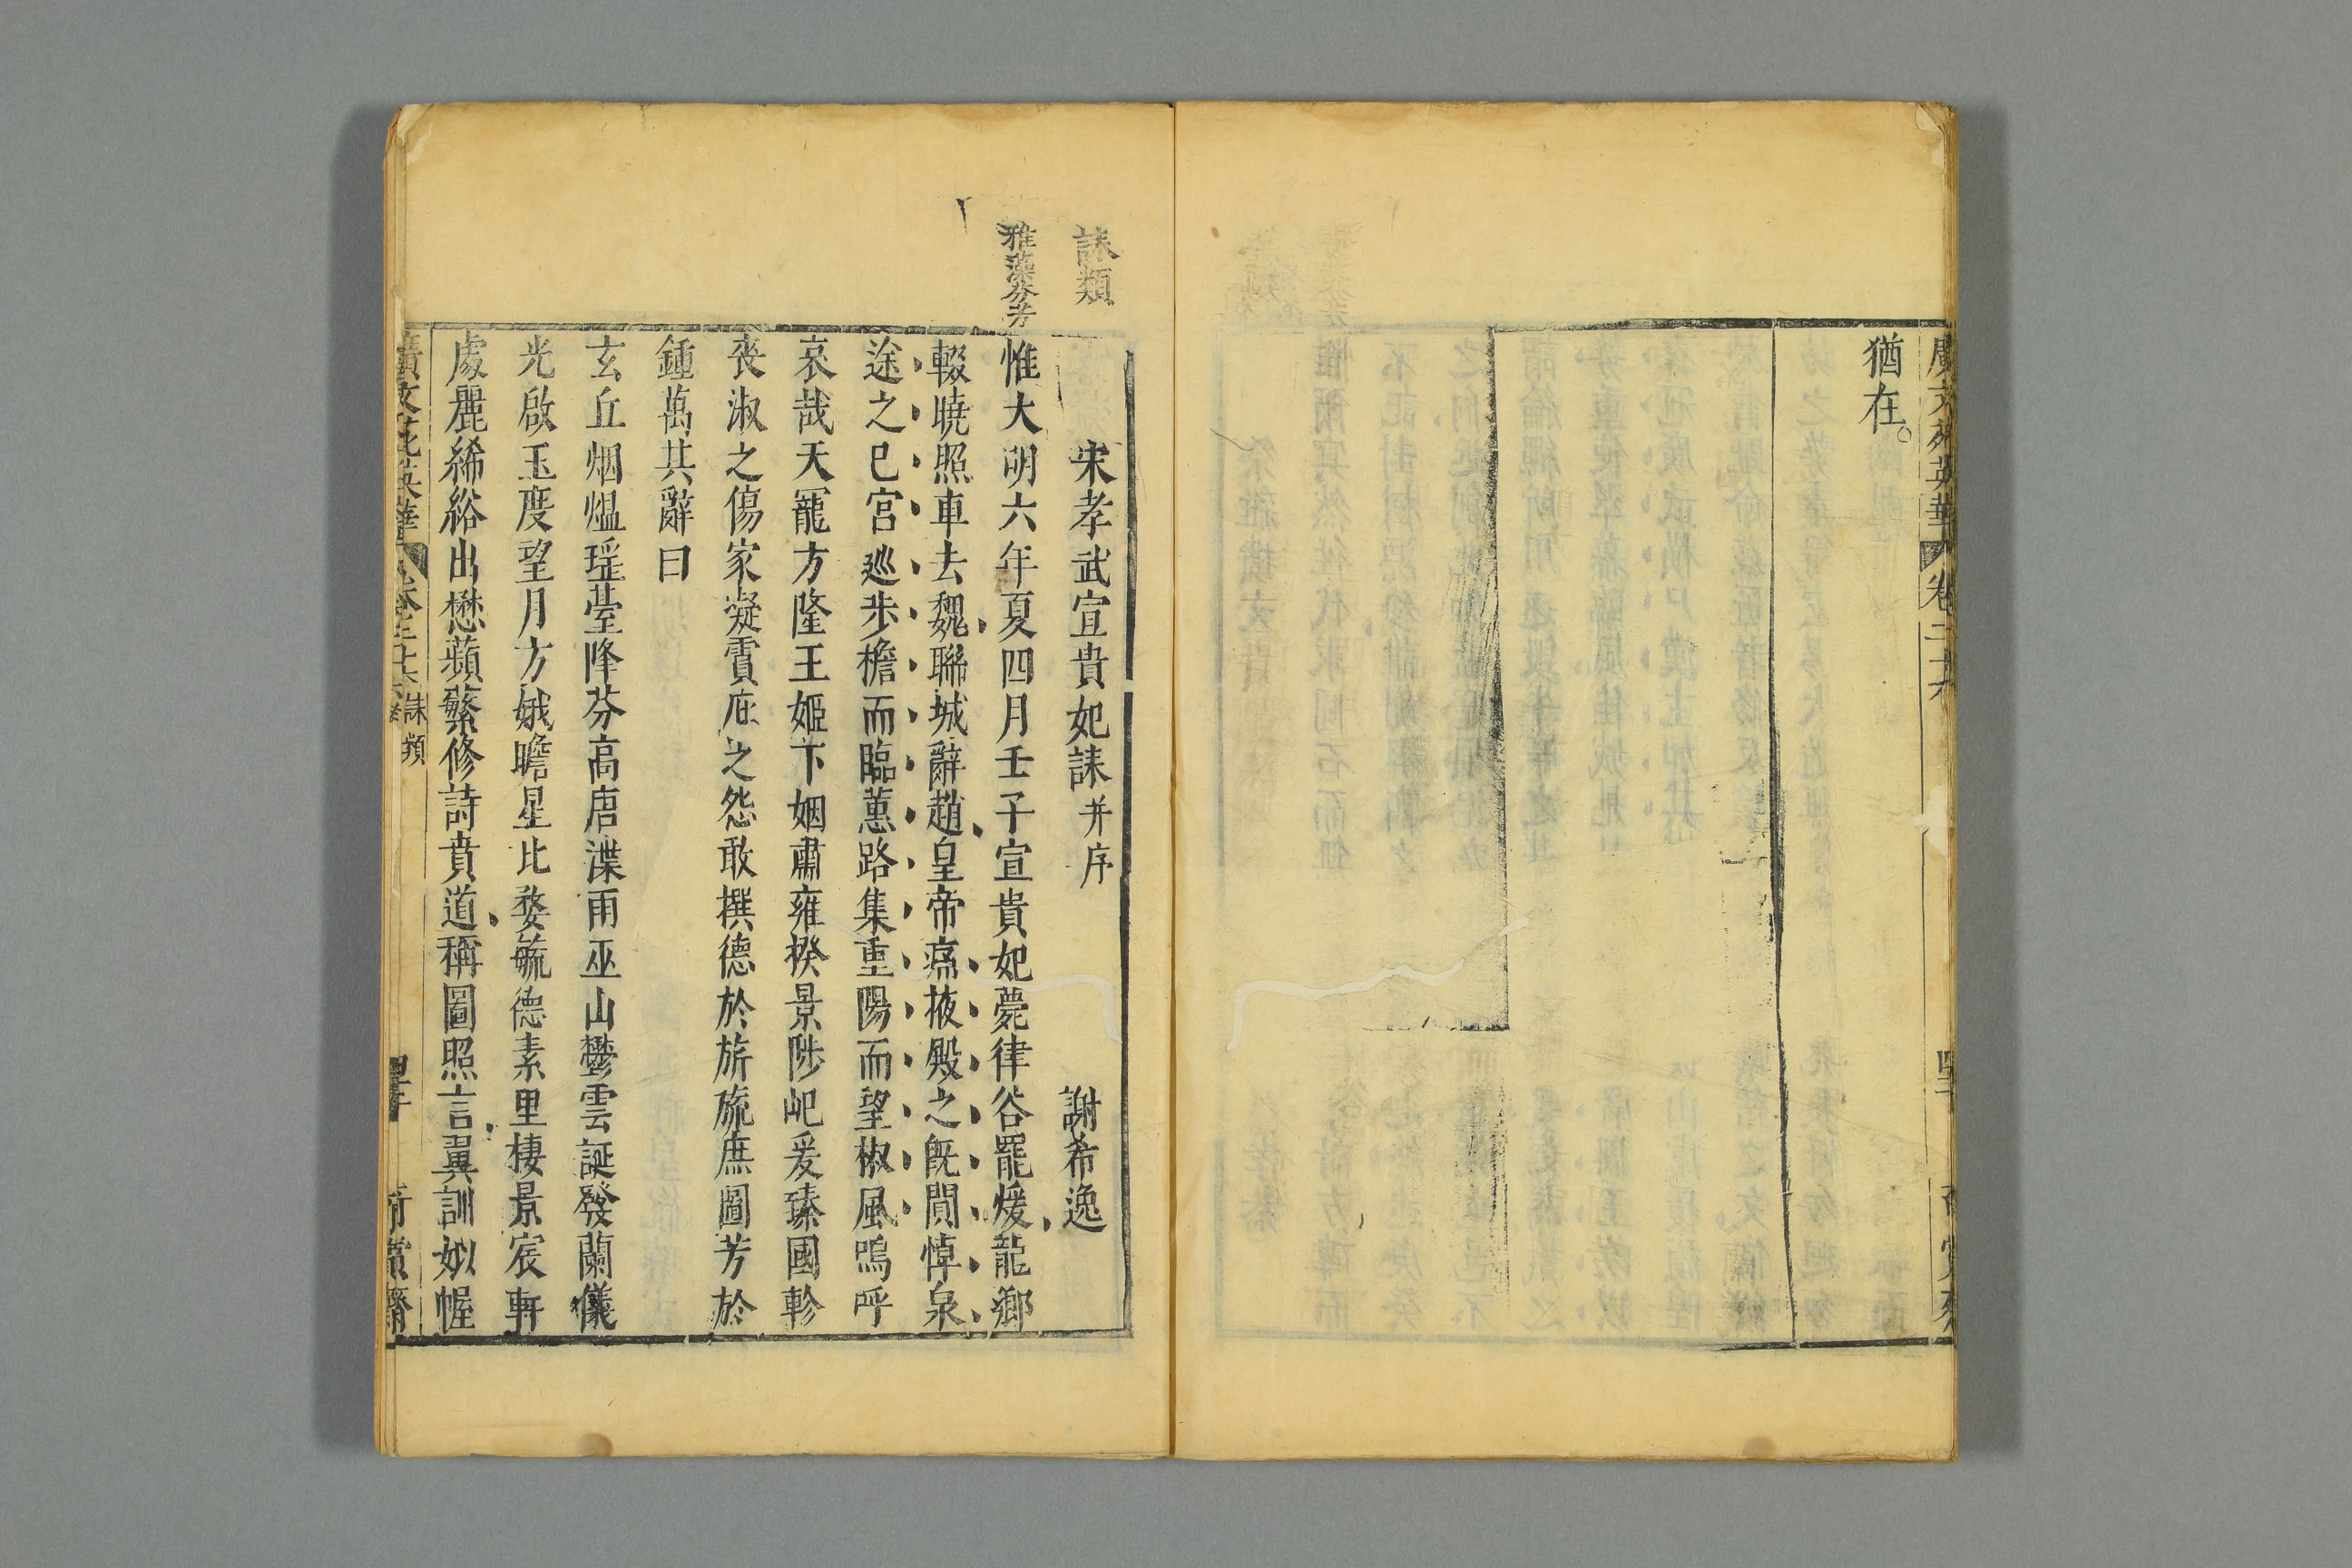 廣文苑英華
卷二十六
猶在。
誄類
雅藻芬芳
宋孝武宣貴妃誄并序
謝希逸
惟大明六年夏四月壬子宣貴妃薨律谷罷煖龍鄉
輟曉照車去魏聯城辭趙皇帝痛掖殿之既闃悼泉
途之已宮巡步檐而臨蕙路集重陽而望椒風嗚呼
哀哉天寵方隆王姬下姻肅雍揆景陟屺爰臻國軫
喪淑之傷家凝霣庇之怨敢撰德於旂旒庶圖芳於
鍾萬其辭曰
玄丘烟熅瑤臺降芬高唐渫雨巫山鬱雲誕發蘭儀
光啟玉度望月方娥瞻星比婺毓德素里棲景宸軒
處麗絺綌出懋蘋蘩修詩賁道稱圖照言翼訓姒幄
廣文苑英華
卷二十六
誄類